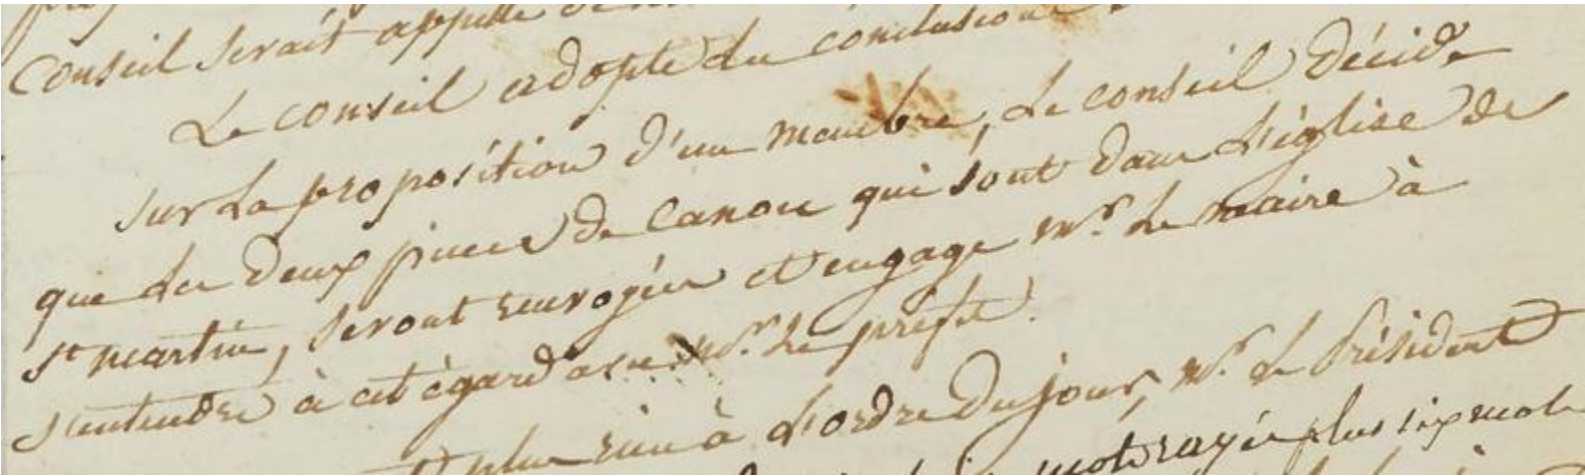 Conseil serait appellé
Le conseil adopte les conclusions.
sur la proposition d'un membre, le conseil décide
que les deux pieces de canon qui sont dans l'église de
St martin, seront envoyées et engage Mr. le maire à
s'entendre à cet égard avec Mr. le préfet.
plus rien à l'ordre du jour, Mr. le Président
mots rayés plus six mots